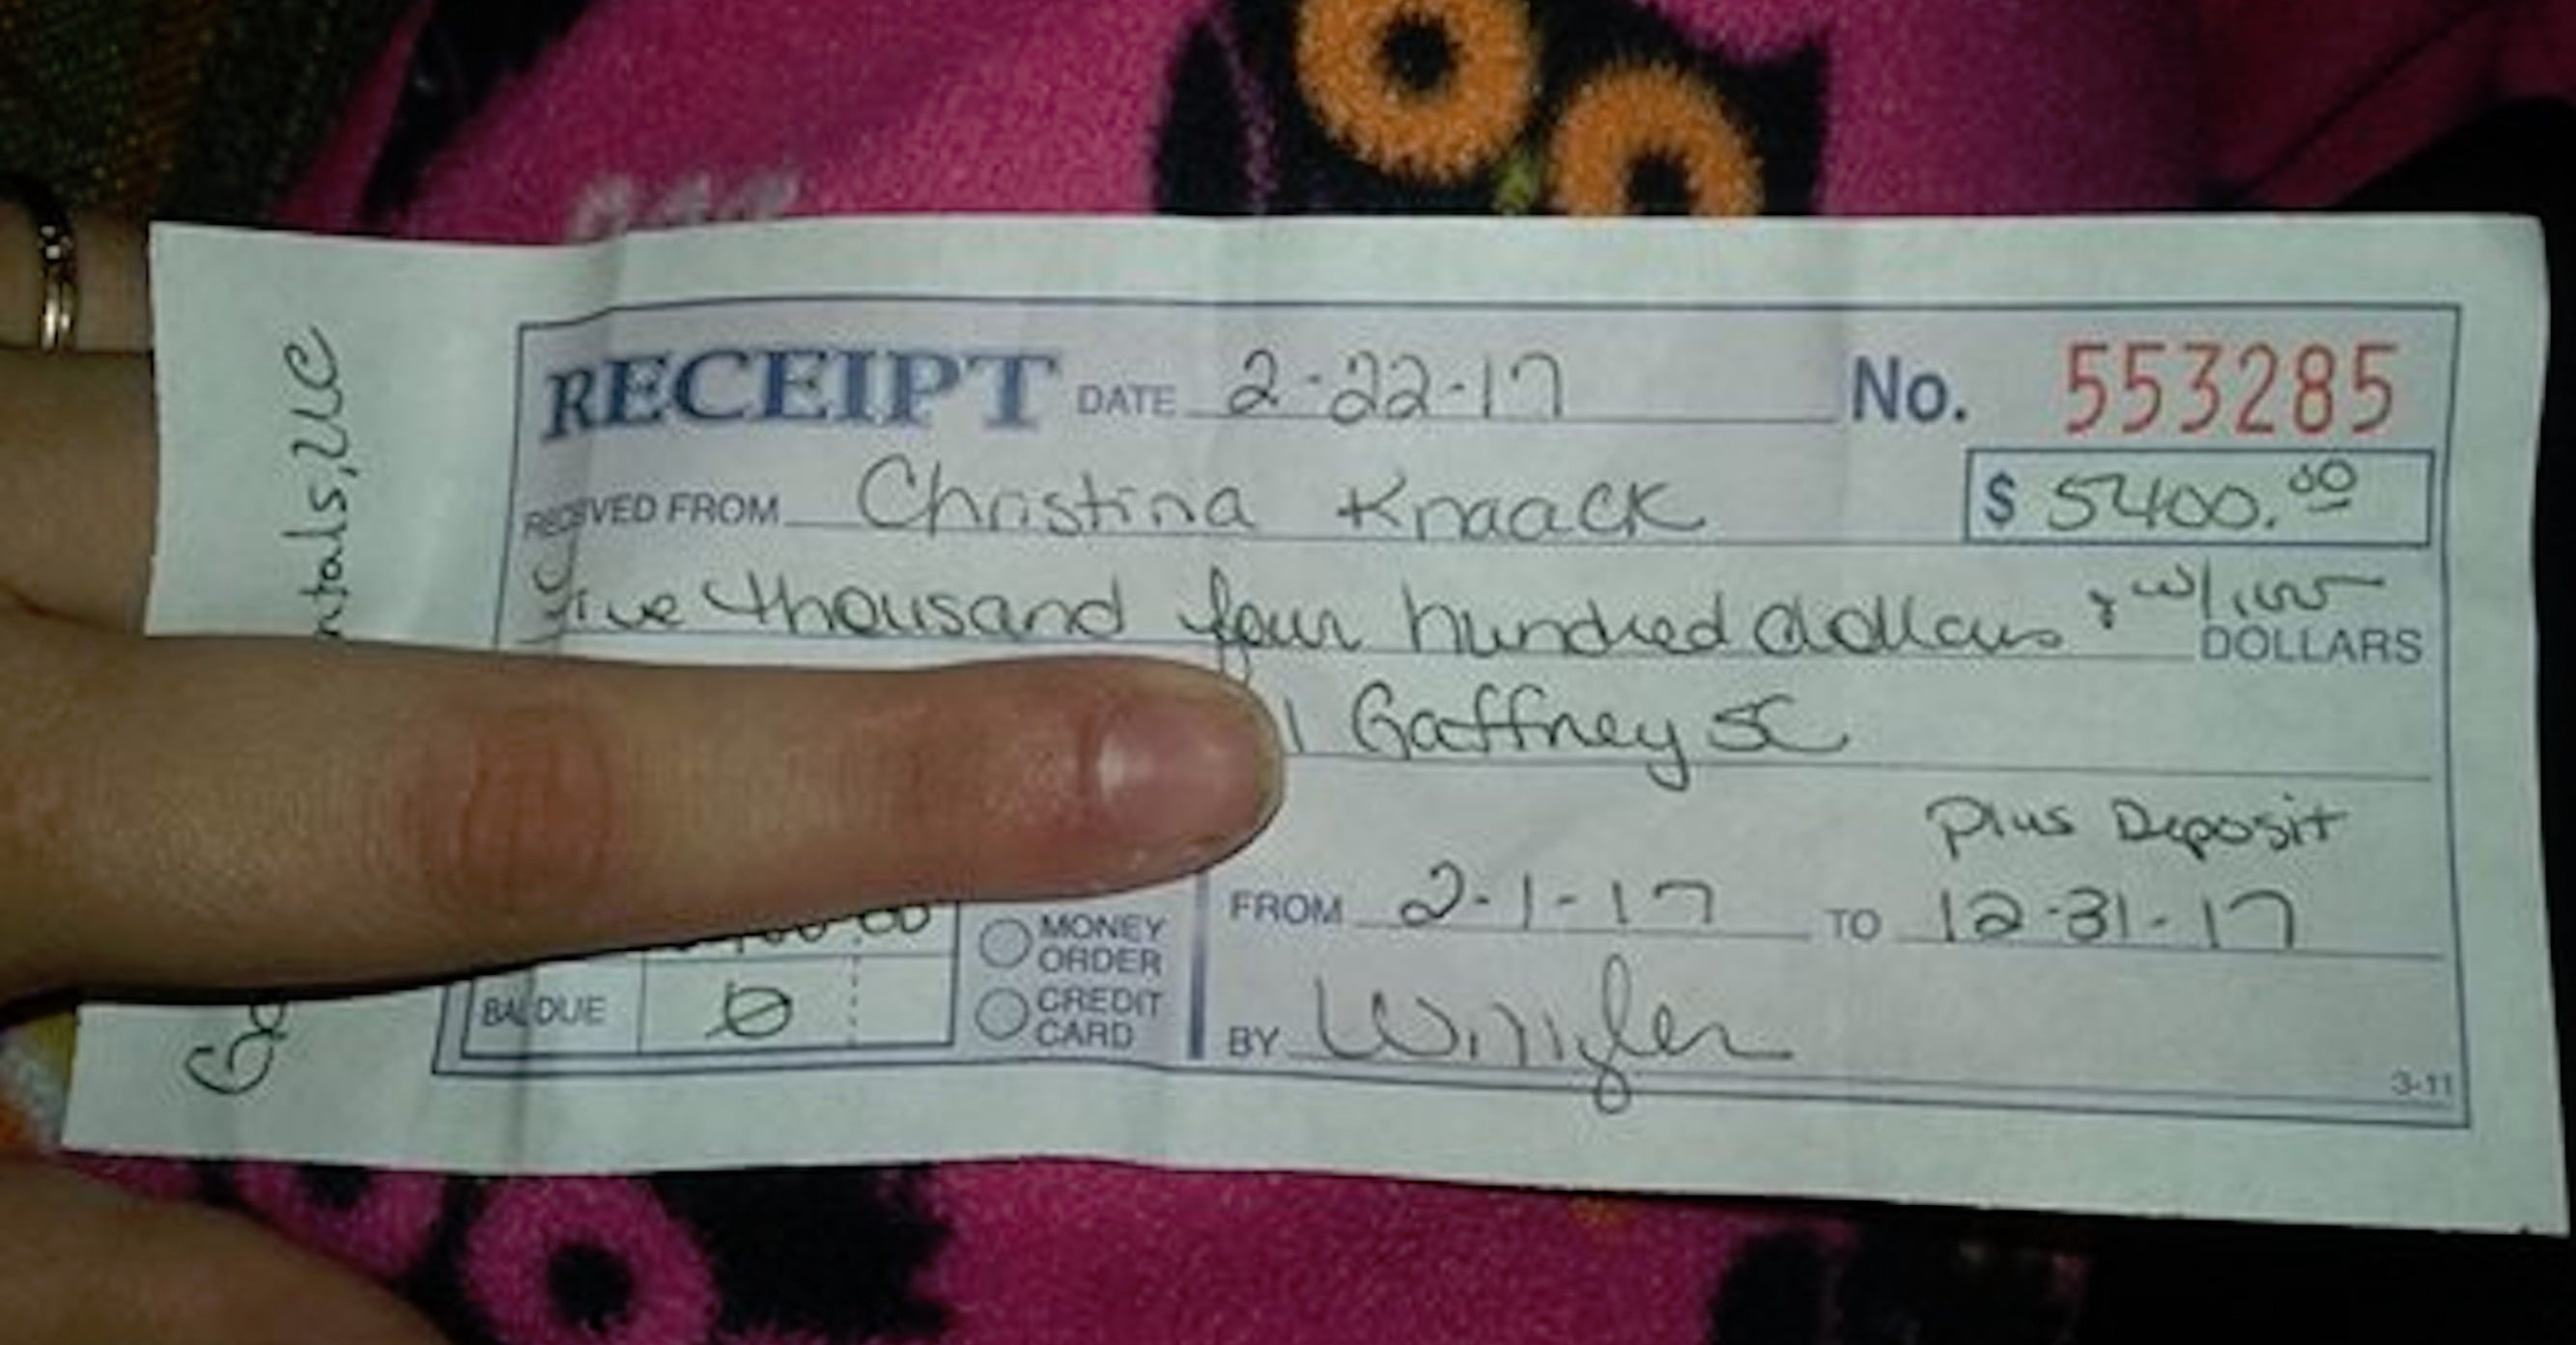 RECEIPT DATE 2-22-17 No. 553285
RECEIVED FROM Christina Knaack $ 5400.00
Five thousand four hundred dollars DOLLARS
Gaffney SC
Plus Deposit
FROM 2-1-17 TO 12-31-17
MONEY ORDER
BAL DUE 0
CREDIT CARD
BY
3-11
ntals, LLC